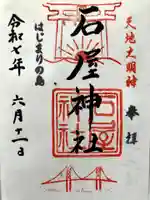 天地大明神
奉拝
石屋神社
はじまりの島
令和七年
六月十一日